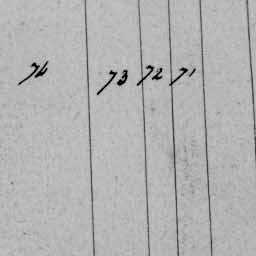 74 73 72 71